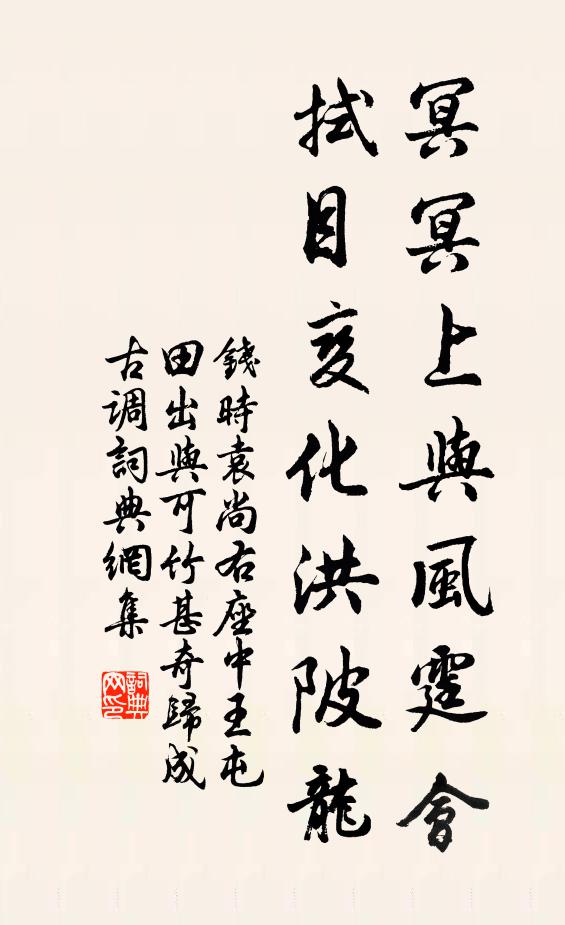 冥冥上與風霆會
拭目变化洪陂龍
錢時袁尚右座中王屯
田出與可竹甚奇歸成
古调詞典網集
詞典
网印